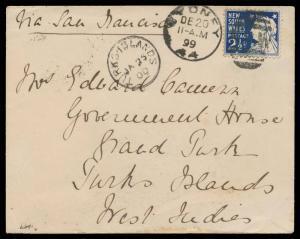 Via San Francisco
SYDNEY
DE 20
11-A.M
99
44
NEW
SOUTH
WALES
POSTAGE
2½
TURKS-ISLANDS
JA 25
00
Mrs Edward Cameron
Government House
Grand Turk
Turks Islands
West Indies